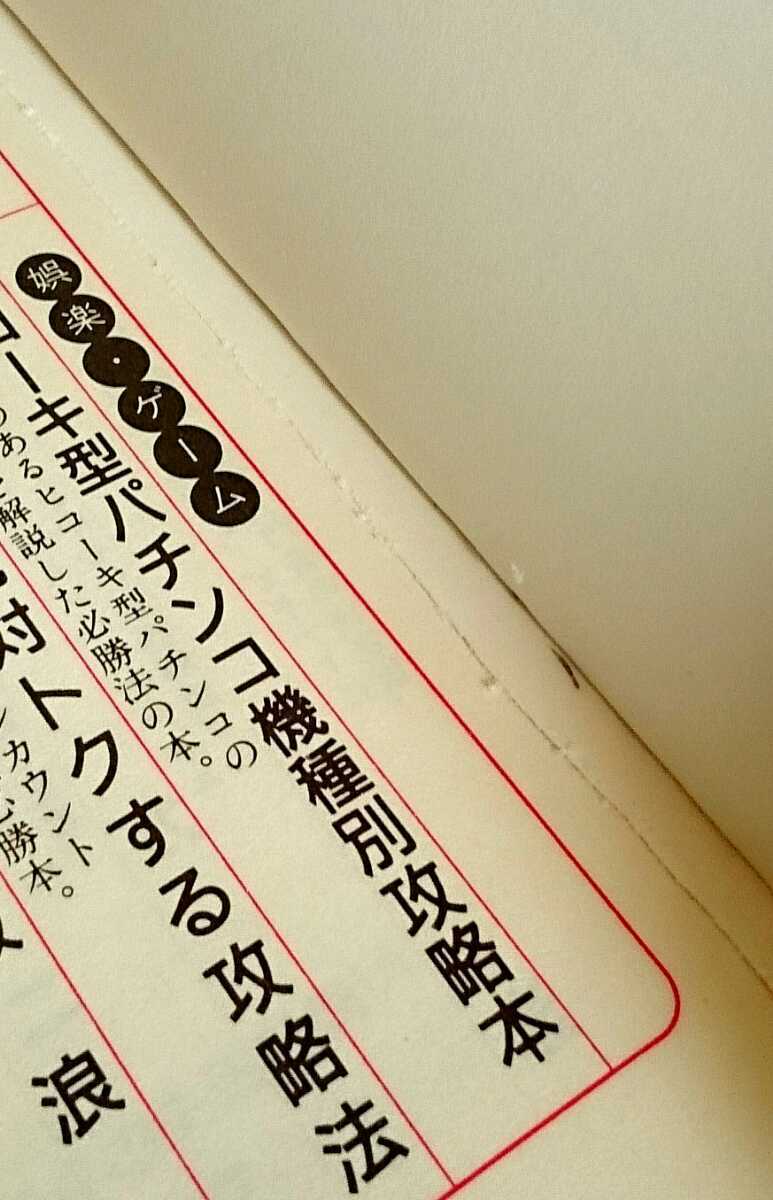 娯楽・ゲーム
コーキ型パチンコ機種別攻略本
のあるヒコーキ型パチンコの
解説した必勝法の本。
対トクする攻略法
カウント
必勝本。
浪